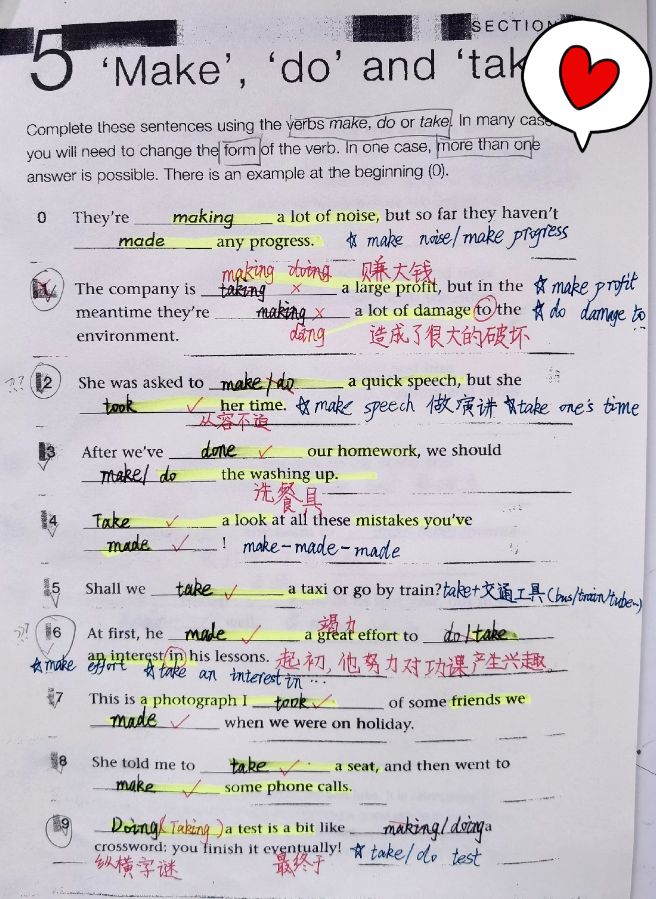 SECTION
5 'Make', 'do' and 'tak
Complete these sentences using the verbs make, do or take. In many case
you will need to change the form of the verb. In one case, more than one
answer is possible. There is an example at the beginning (0).
0 They're making a lot of noise, but so far they haven't
made any progress. ☆ make noise/make progress
making doing 赚大钱
The company is taking × a large profit, but in the ☆ make profit
meantime they're making × a lot of damage to the ☆ do damage to
environment. doing 造成了很大的破坏
??
2 She was asked to make/do a quick speech, but she
took ✓ her time. ☆ make speech 做演讲 ☆take one's time
从容不迫
3 After we've done ✓ our homework, we should
make/ do the washing up.
洗餐具
4 Take ✓ a look at all these mistakes you've
made ✓ ! make-made-made
5 Shall we take ✓ a taxi or go by train? take+交通工具(bus/train/tube~)
竭力
??
6 At first, he made ✓ a great effort to do/take
an interest in his lessons. 起初,他努力对功课产生兴趣.
☆make effort ☆take an interest in ...
7 This is a photograph I took ✓ of some friends we
made ✓ when we were on holiday.
8 She told me to take ✓ a seat, and then went to
make ✓ some phone calls.
9 Doing(Taking) a test is a bit like making/doing a
crossword: you finish it eventually! ☆take/do test
纵横字谜 最终于